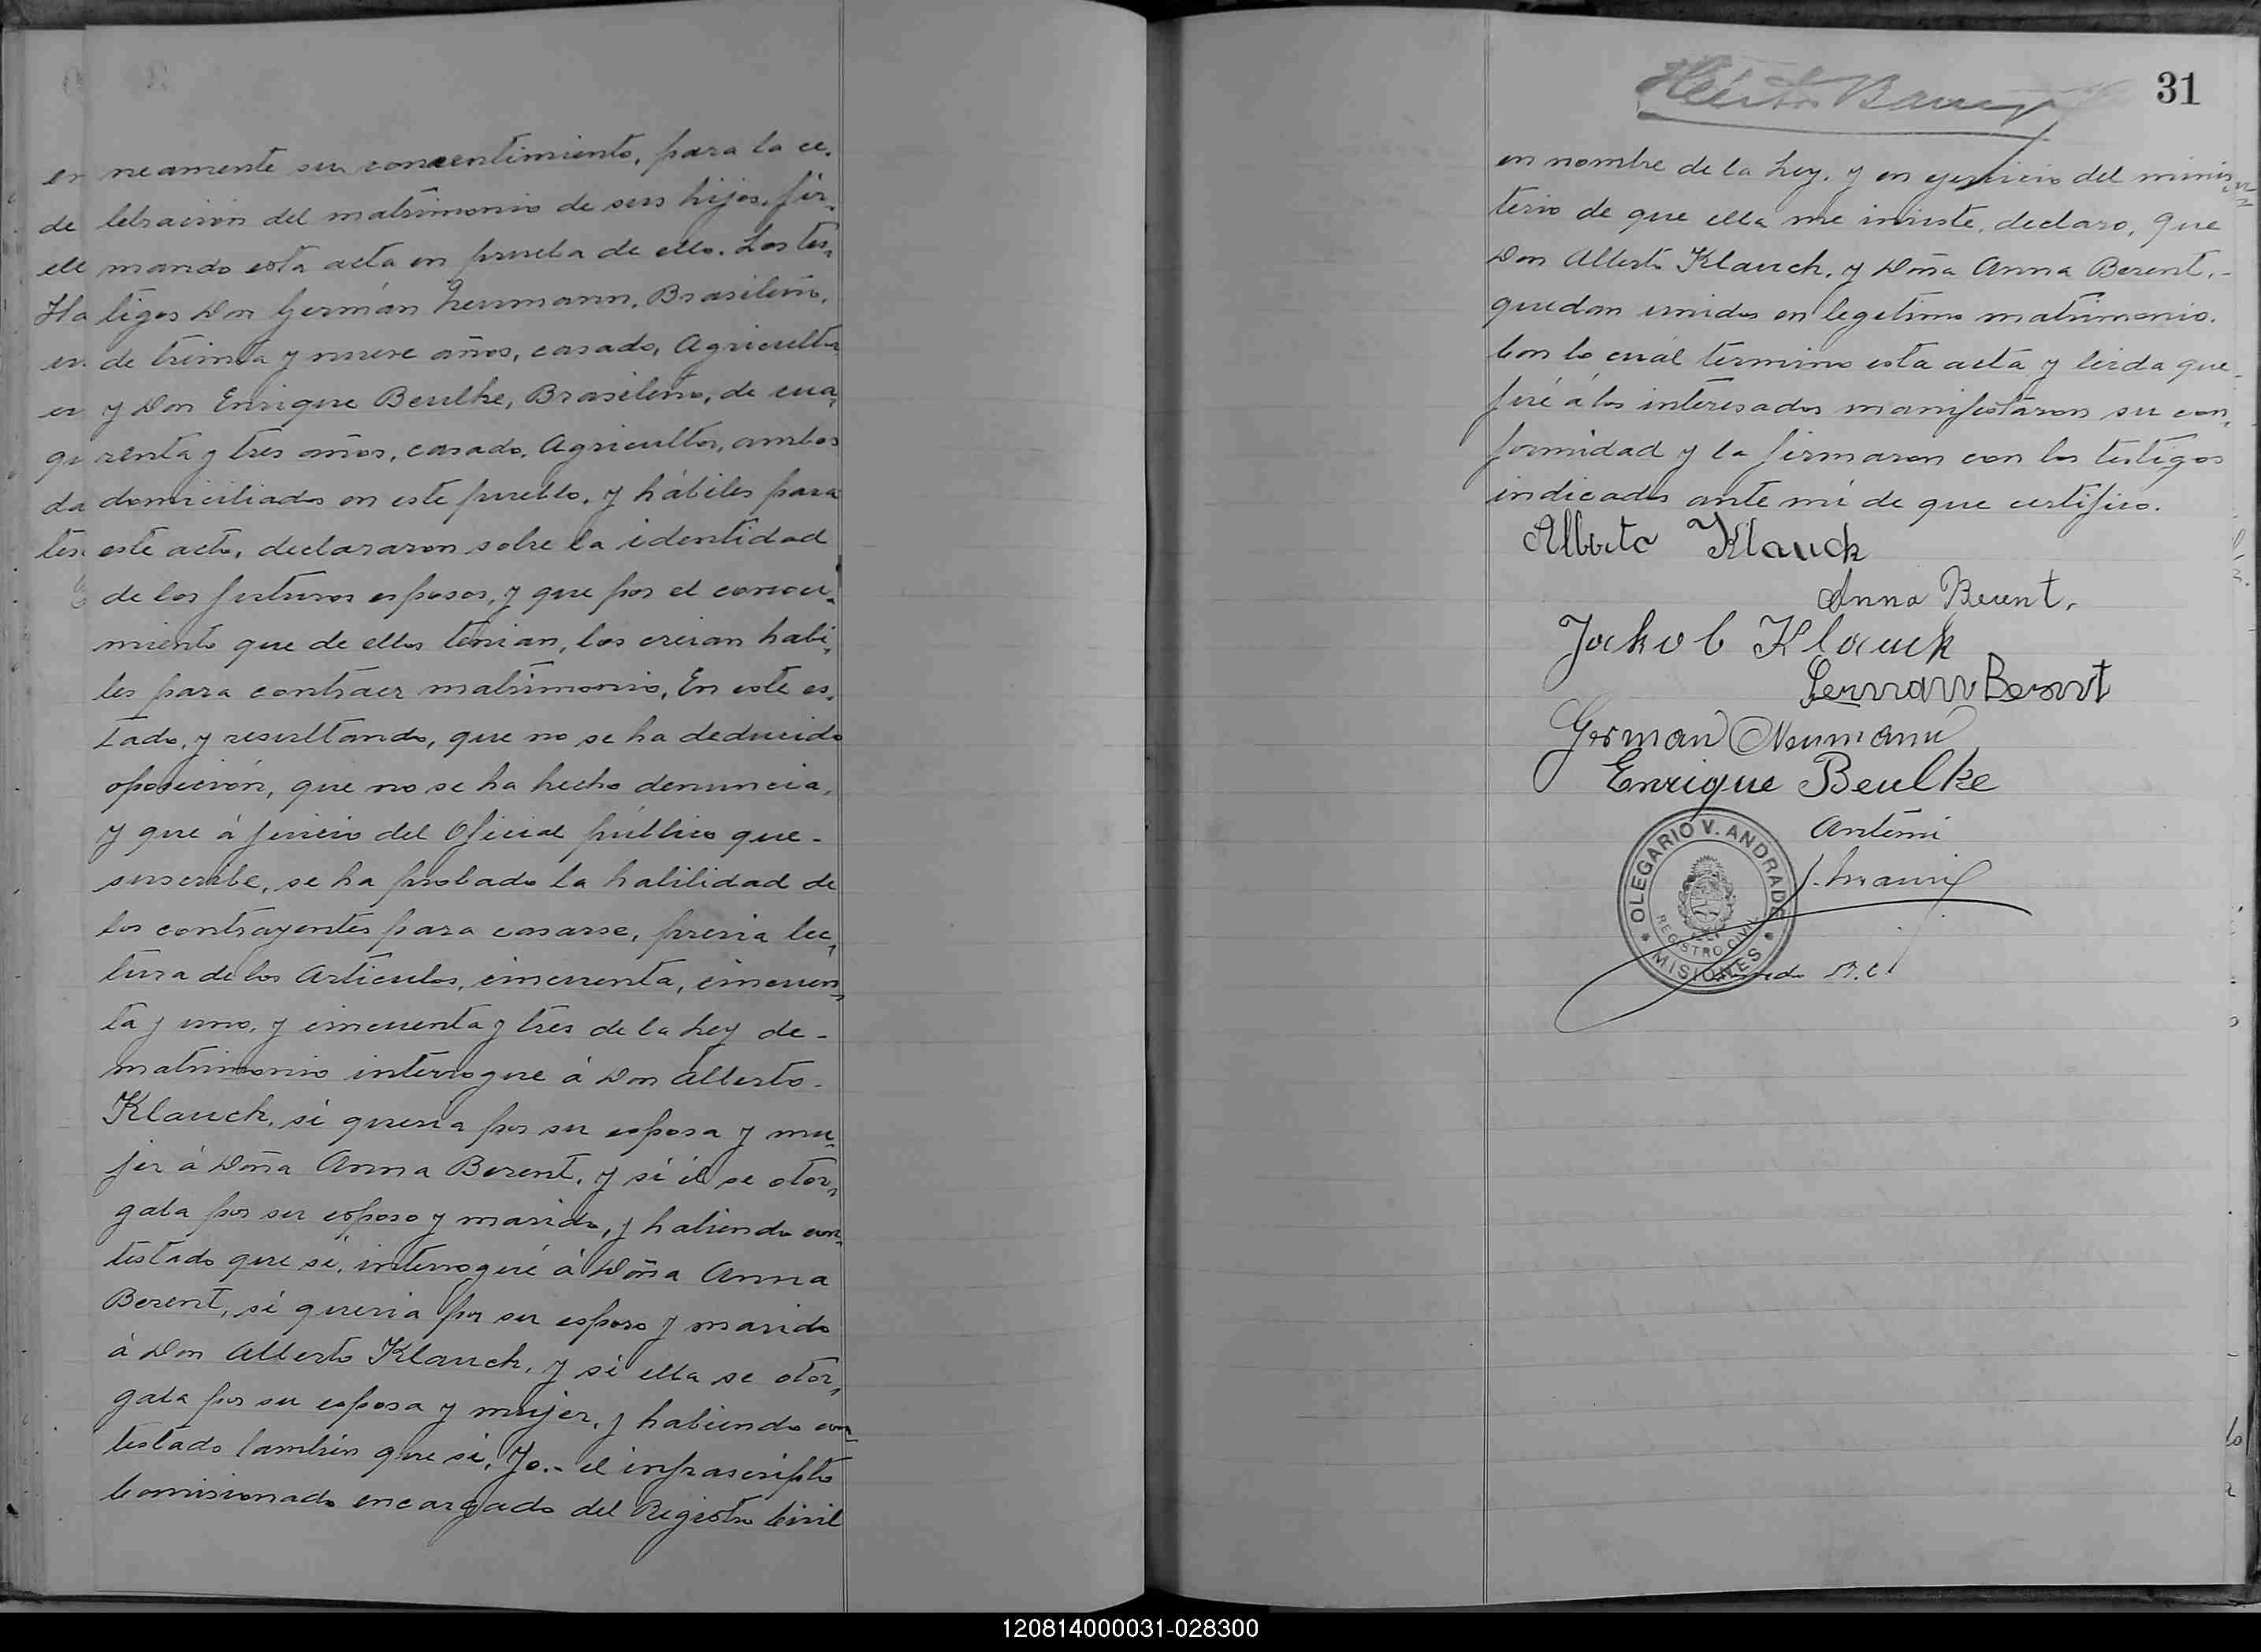 neamente su consentimiento, para la ce,
lebración del matrimonio de sus hijos, fir,
mando esta acta en prueba de ello. Los tes,
tigos Don Germán Neumann, Brasileño,
de treinta y nueve años, casado, Agricultor
y Don Enrique Beulke, Brasileño, de cua,
renta y tres años, casado, Agricultor, ambos
domiciliados en este pueblo, y hábiles para
este acto, declararon sobre la identidad
de los futuros esposos, y que por el conoci,
miento que de ellos tenian, los creian habi,
les para contraer matrimonio, En este es,
tado, y resultando, que no se ha deducido
oposición, que no se ha hecho denuncia,
y que á juicio del Oficial público que-
suscribe, se ha probado la habilidad de
los contrayentes para casarse, previa lec,
tura de los Articulos, cincuenta, cincuen,
ta y uno, y cincuenta y tres de la Ley de-
matrimonio interrogue á Don Alberto-
Klauch, si queria por su esposa y mu,
jer á Doña Anna Berent, y si él se otor,
gaba por su esposo y marido, y habiendo con,
testado que si, interrogué á Doña Anna
Berent, si queria por su esposo y marido
á Don Alberto Klauch, y si ella se otor,
gaba por su esposa y mujer, y habiendo con,
testado tambien que si, Yo.- el infrascripto
Comisionado encargado del Registro Civil
31
en nombre de la Ley, y en ejercicio del minis,
terio de que ella me inviste, declaro, que
Don Alberto Klauch, y Doña Anna Berent,-
quedan unidos en legitimo matrimonio.
Con lo cuál termino esta acta y leida que-
fué á los interesados manifestaron su con,
formidad y la firmaron con los testigos
indicados ante mi de que certifico.
Alberto Klauck
Anna Berent.
Jakob Klauck
German Berent
German Neumann
Enrique Beulke
Antemi
OLEGARIO V. ANDRADE
REGISTRO CIVIL
MISIONES
120814000031-028300